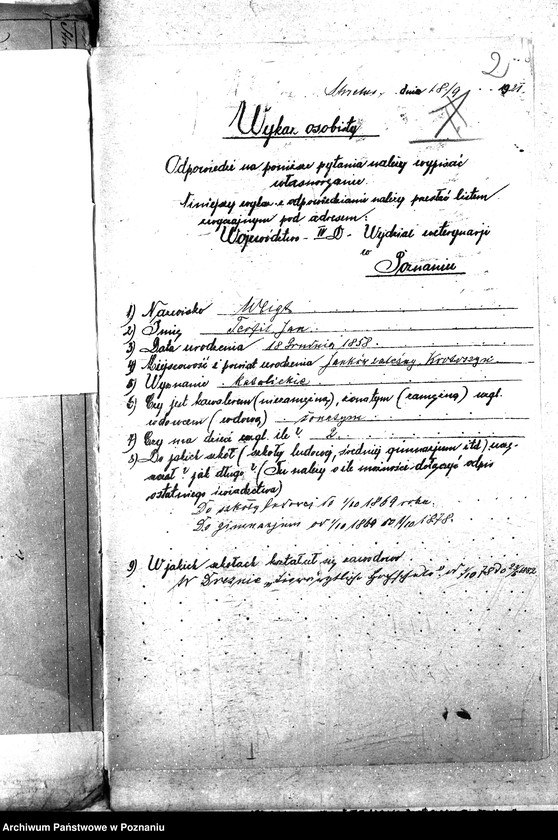 2
dnia 18/9 1921.
Wykaz osobisty
Odpowiedzi na poniższe pytania należy wypisać
własnoręcznie
Niniejszy wykaz z odpowiedziami należy przesłać listem
zwyczajnym pod adresem:
Województwo - III D - Wydział weterynarji
w
Poznaniu
1) Nazwisko Weigt
2) Imię Teofil Jan
3) Data urodzenia 18 Grudnia 1858.
4) Miejscowość i powiat urodzenia Janków
5) Wyznanie Katolickie
6) Czy jest kawalerem (niezamężną), żonatym (zamężną) wzgl.
wdowcem (wdową) żonatym
7) Czy ma dzieci wzgl. ile? 2.
8) Do jakich szkół (szkoły ludowej, średniej gimnazjum itd) uczęszczał? jak długo? (Tu należy o ile możności dołączyć odpis
ostatniego świadectwa)
Do szkoły ludowej do 1/10 1869 roku.
Do gimnazjum od 1/10 1869 do 1/10 1878.
9) W jakich szkołach kształcił się zawodowo
W Dreźnie „Tierärztliche Hochschule" od 1/10 78 do
Archiwum Państwowe w Poznaniu